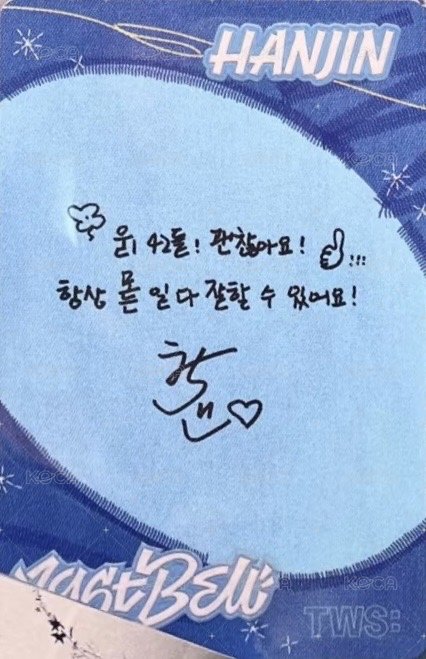 HANJIN
우리 42들! 괜찮아요! !!!
항상 모든 일 다 잘할 수 있어요!
한진
Last Bell
TWS:
KOCA